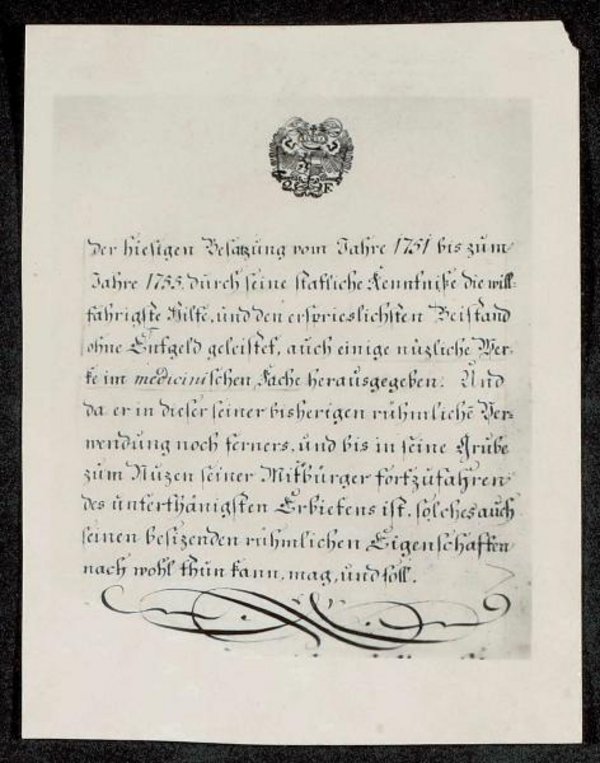 der hiesigen Besatzung vom Jahre 1751 bis zum
Jahre 1755. durch seine stattliche Kenntniße die will=
fährigste Hilfe, und den ersprieslichsten Beistand
ohne Entgeld geleistet, auch einige nüzliche Wer=
ke im medicinischen Fache herausgegeben. Und
da er in dieser seiner bisherigen rühmlichē Ver=
wendung noch ferners, und bis in seine Grube
zum Nuzen seiner Mitbürger fortzufahren
des unterthänigsten Erbietens ist, solches auch
seinen besizenden rühmlichen Eigenschaften
nach wohl thun kann, mag, und soll.